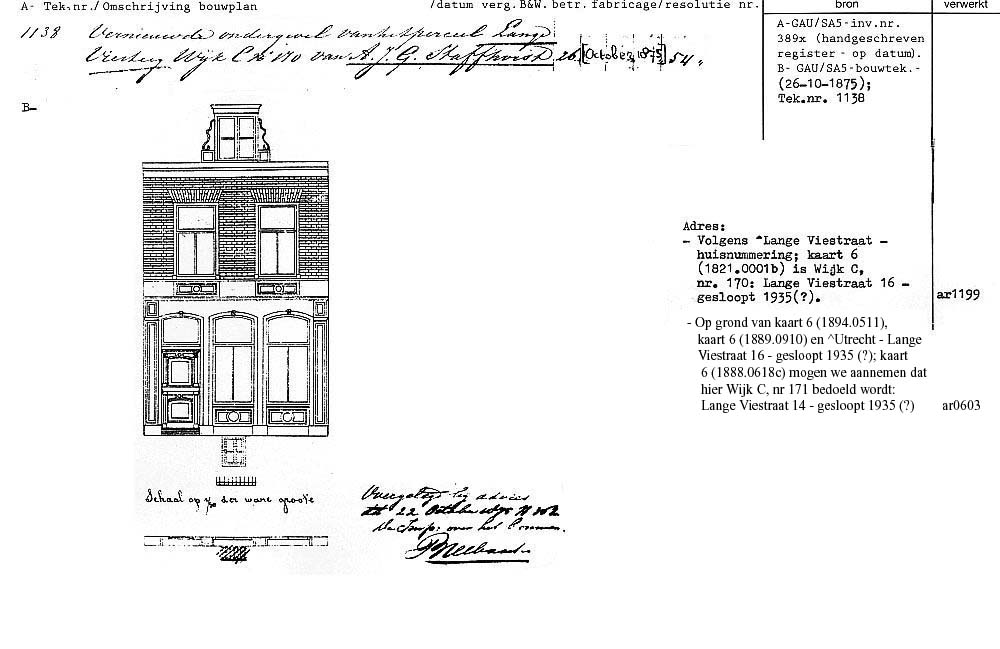 A- Tek.nr./Omschrijving bouwplan /datum verg.B&W. betr. fabricage/resolutie nr. bron verwerkt
1138 Vernieuwde ondergevel van het perceel Lange
Viestraat Wijk C No 170 van A. J. G. Staffhorst 26 [October 1875] 54.
A-GAU/SA5-inv.nr.
389x (handgeschreven
register - op datum).
B- GAU/SA5-bouwtek.-
(26-10-1875);
Tek.nr. 1138
B-
Adres:
- Volgens ^Lange Viestraat -
huisnummering; kaart 6
(1821.0001b) is Wijk C,
nr. 170: Lange Viestraat 16 -
gesloopt 1935(?).
ar1199
- Op grond van kaart 6 (1894.0511),
kaart 6 (1889.0910) en ^Utrecht - Lange
Viestraat 16 - gesloopt 1935 (?); kaart
6 (1888.0618c) mogen we aannemen dat
hier Wijk C, nr 171 bedoeld wordt:
Lange Viestraat 14 - gesloopt 1935 (?)
ar0603
Schaal op der ware groote
Overgelegd bij advies
dd 22 October
De Insp: over het